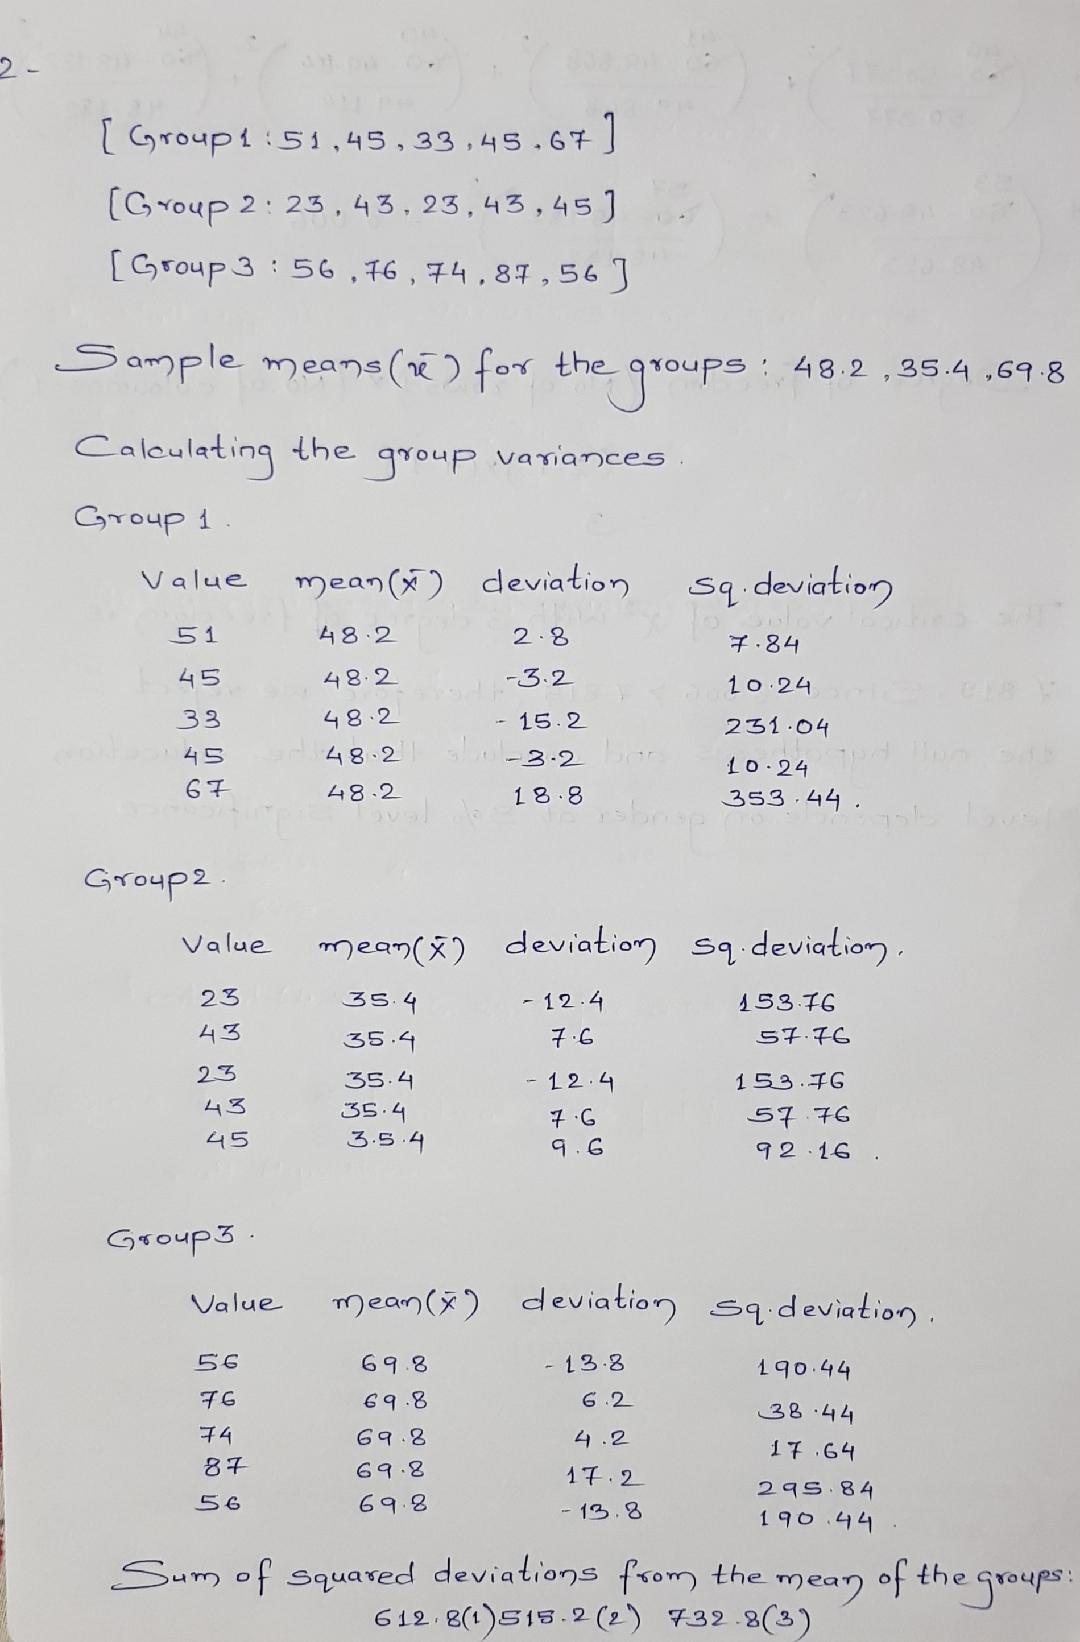 2-
[Group1:51,45,33,45.67]
[Group 2: 23,43,23,43,45]
[Group3:56,76,74,87,56]
Sample means(x̄) for the groups: 48.2,35.4,69.8
Calculating the group variances.
Group 1.
Value mean(x̄) deviation sq.deviation
51 48.2 2.8 7.84
45 48.2 -3.2 10.24
33 48.2 -15.2 231.04
45 48.2 -3.2 10.24
67 48.2 18.8 353.44.
Group2.
Value mean(x̄) deviation sq.deviation.
23 35.4 -12.4 153.76
43 35.4 7.6 57.76
23 35.4 -12.4 153.76
43 35.4 7.6 57.76
45 3.5.4 9.6 92.16.
Group3.
Value mean(x̄) deviation sq.deviation.
56 69.8 -13.8 190.44
76 69.8 6.2 38.44
74 69.8 4.2 17.64
87 69.8 17.2 295.84
56 69.8 -13.8 190.44.
Sum of squared deviations from the mean of the groups:
612.8(1)515.2(2) 732.8(3)